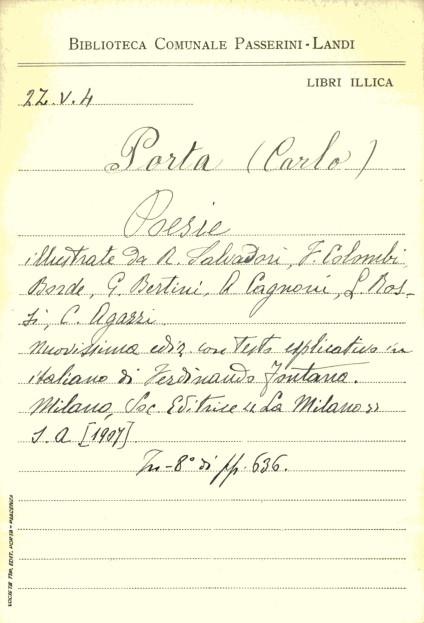 BIBLIOTECA COMUNALE PASSERINI-LANDI
LIBRI ILLICA
2Z.V.4
Porta (Carlo)
Poesie
illustrate da R. Salvadori, F. Colombi
Borde, G. Bertini, A Cagnoni, L Ros-
si, C. Agazzi
nuovissima ediz con testo esplicativo in
italiano di Ferdinando Fontana.
Milano, Soc Editrice «La Milano»
S. A [1907]
In-8° di pp. 636.
SOCIETÀ TIP. EDIT. PORTA - PIACENZA